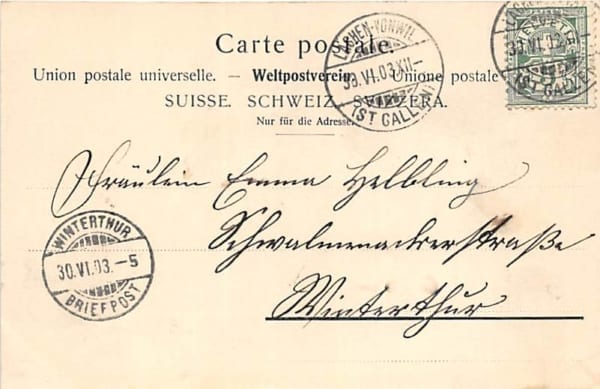 Carte postale.
Union postale universelle. — Weltpostverein. Unione postale
SUISSE. SCHWEIZ. SVIZZERA.
Nur für die Adresse.
LACHEN-VONWIL
30.VI.03.XII–
(ST GALLEN)
30.VI.03.
(ST GALLEN)
Fräulein Emma Helbling
Schwalmenackerstraße
Winterthur
WINTERTHUR
30.VI.03.–5
BRIEFPOST